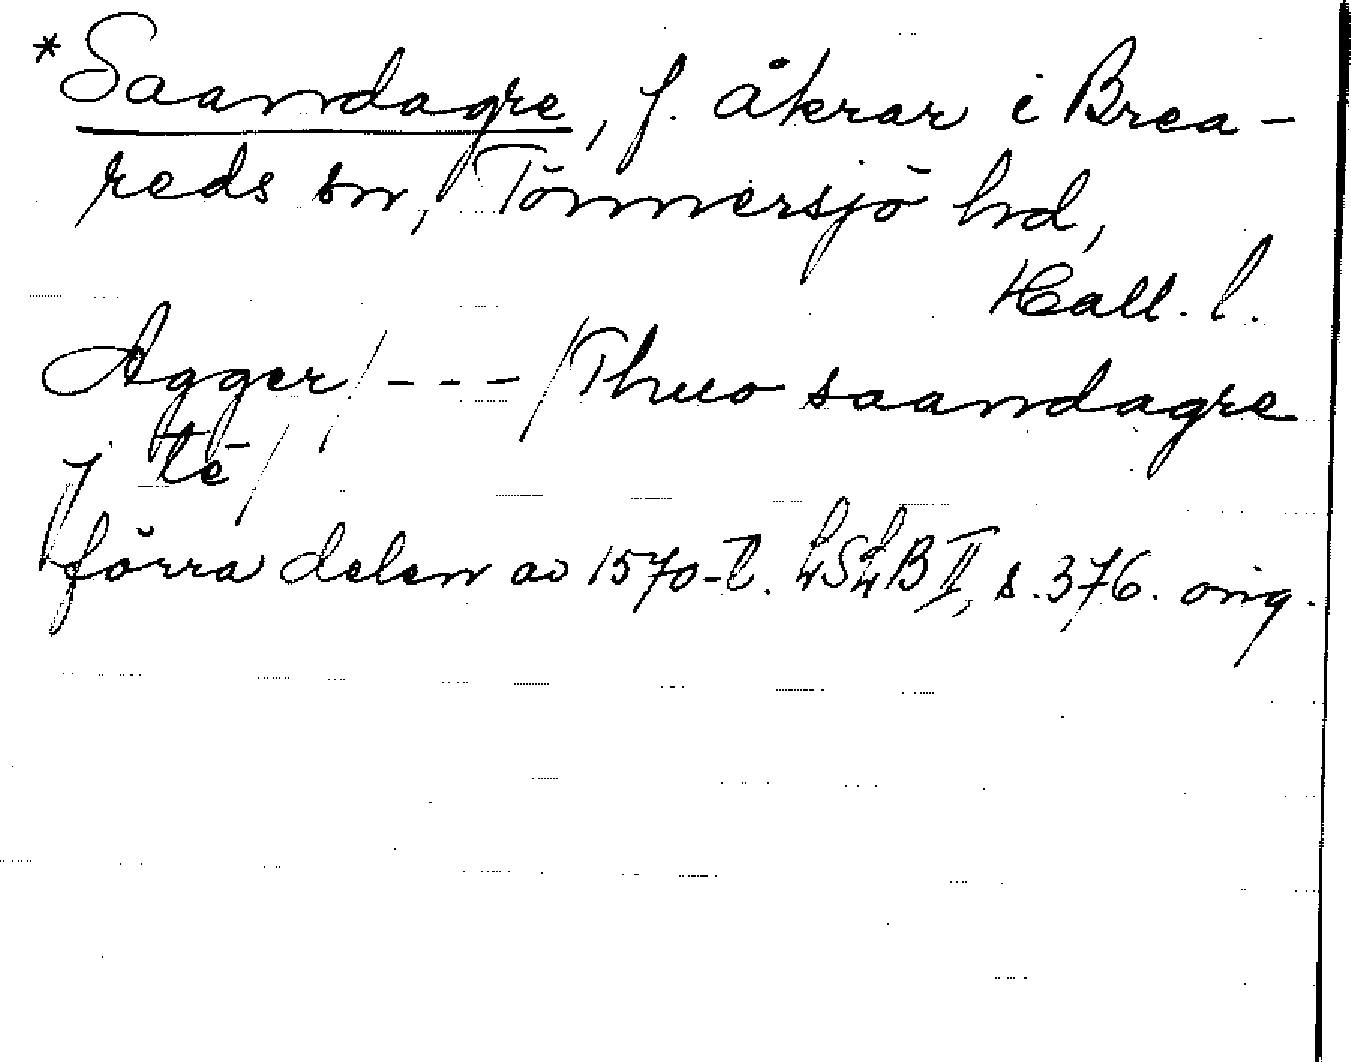 *Saandagre, f. åkrar i Brea-
reds sn, Tönnersjö hd,
Hall. l.
Agger /---/ Thuo saandagre
j té /
förra delen av 1570-t. LSLB II, s. 376. orig.